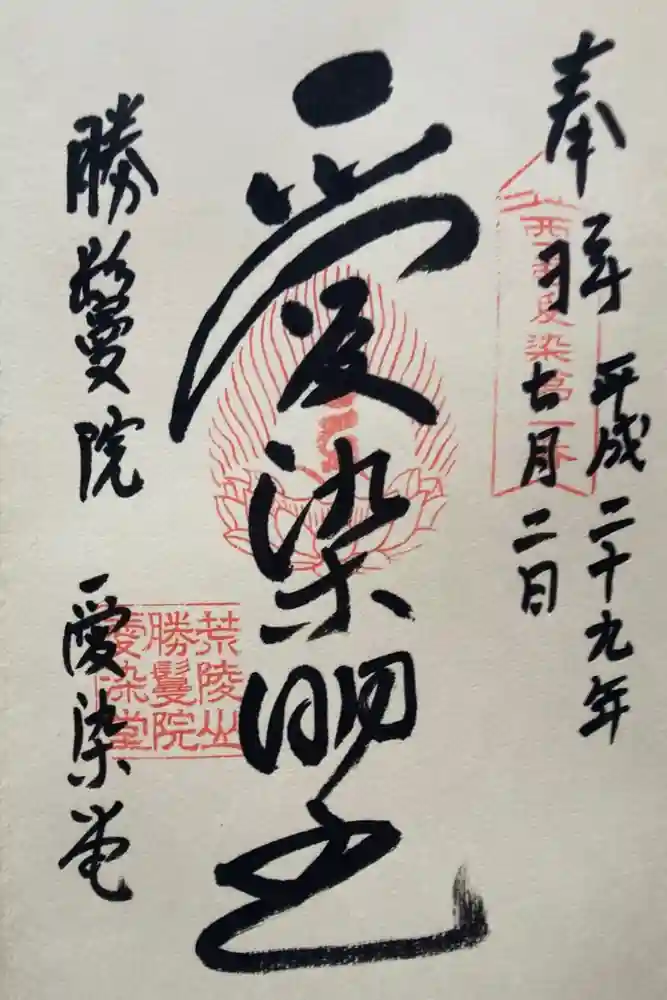 奉拝
平成二十九年
七月二日
西国愛染第一番
愛染明王
荒陵山
勝鬘院
愛染堂
勝鬘院
愛染堂